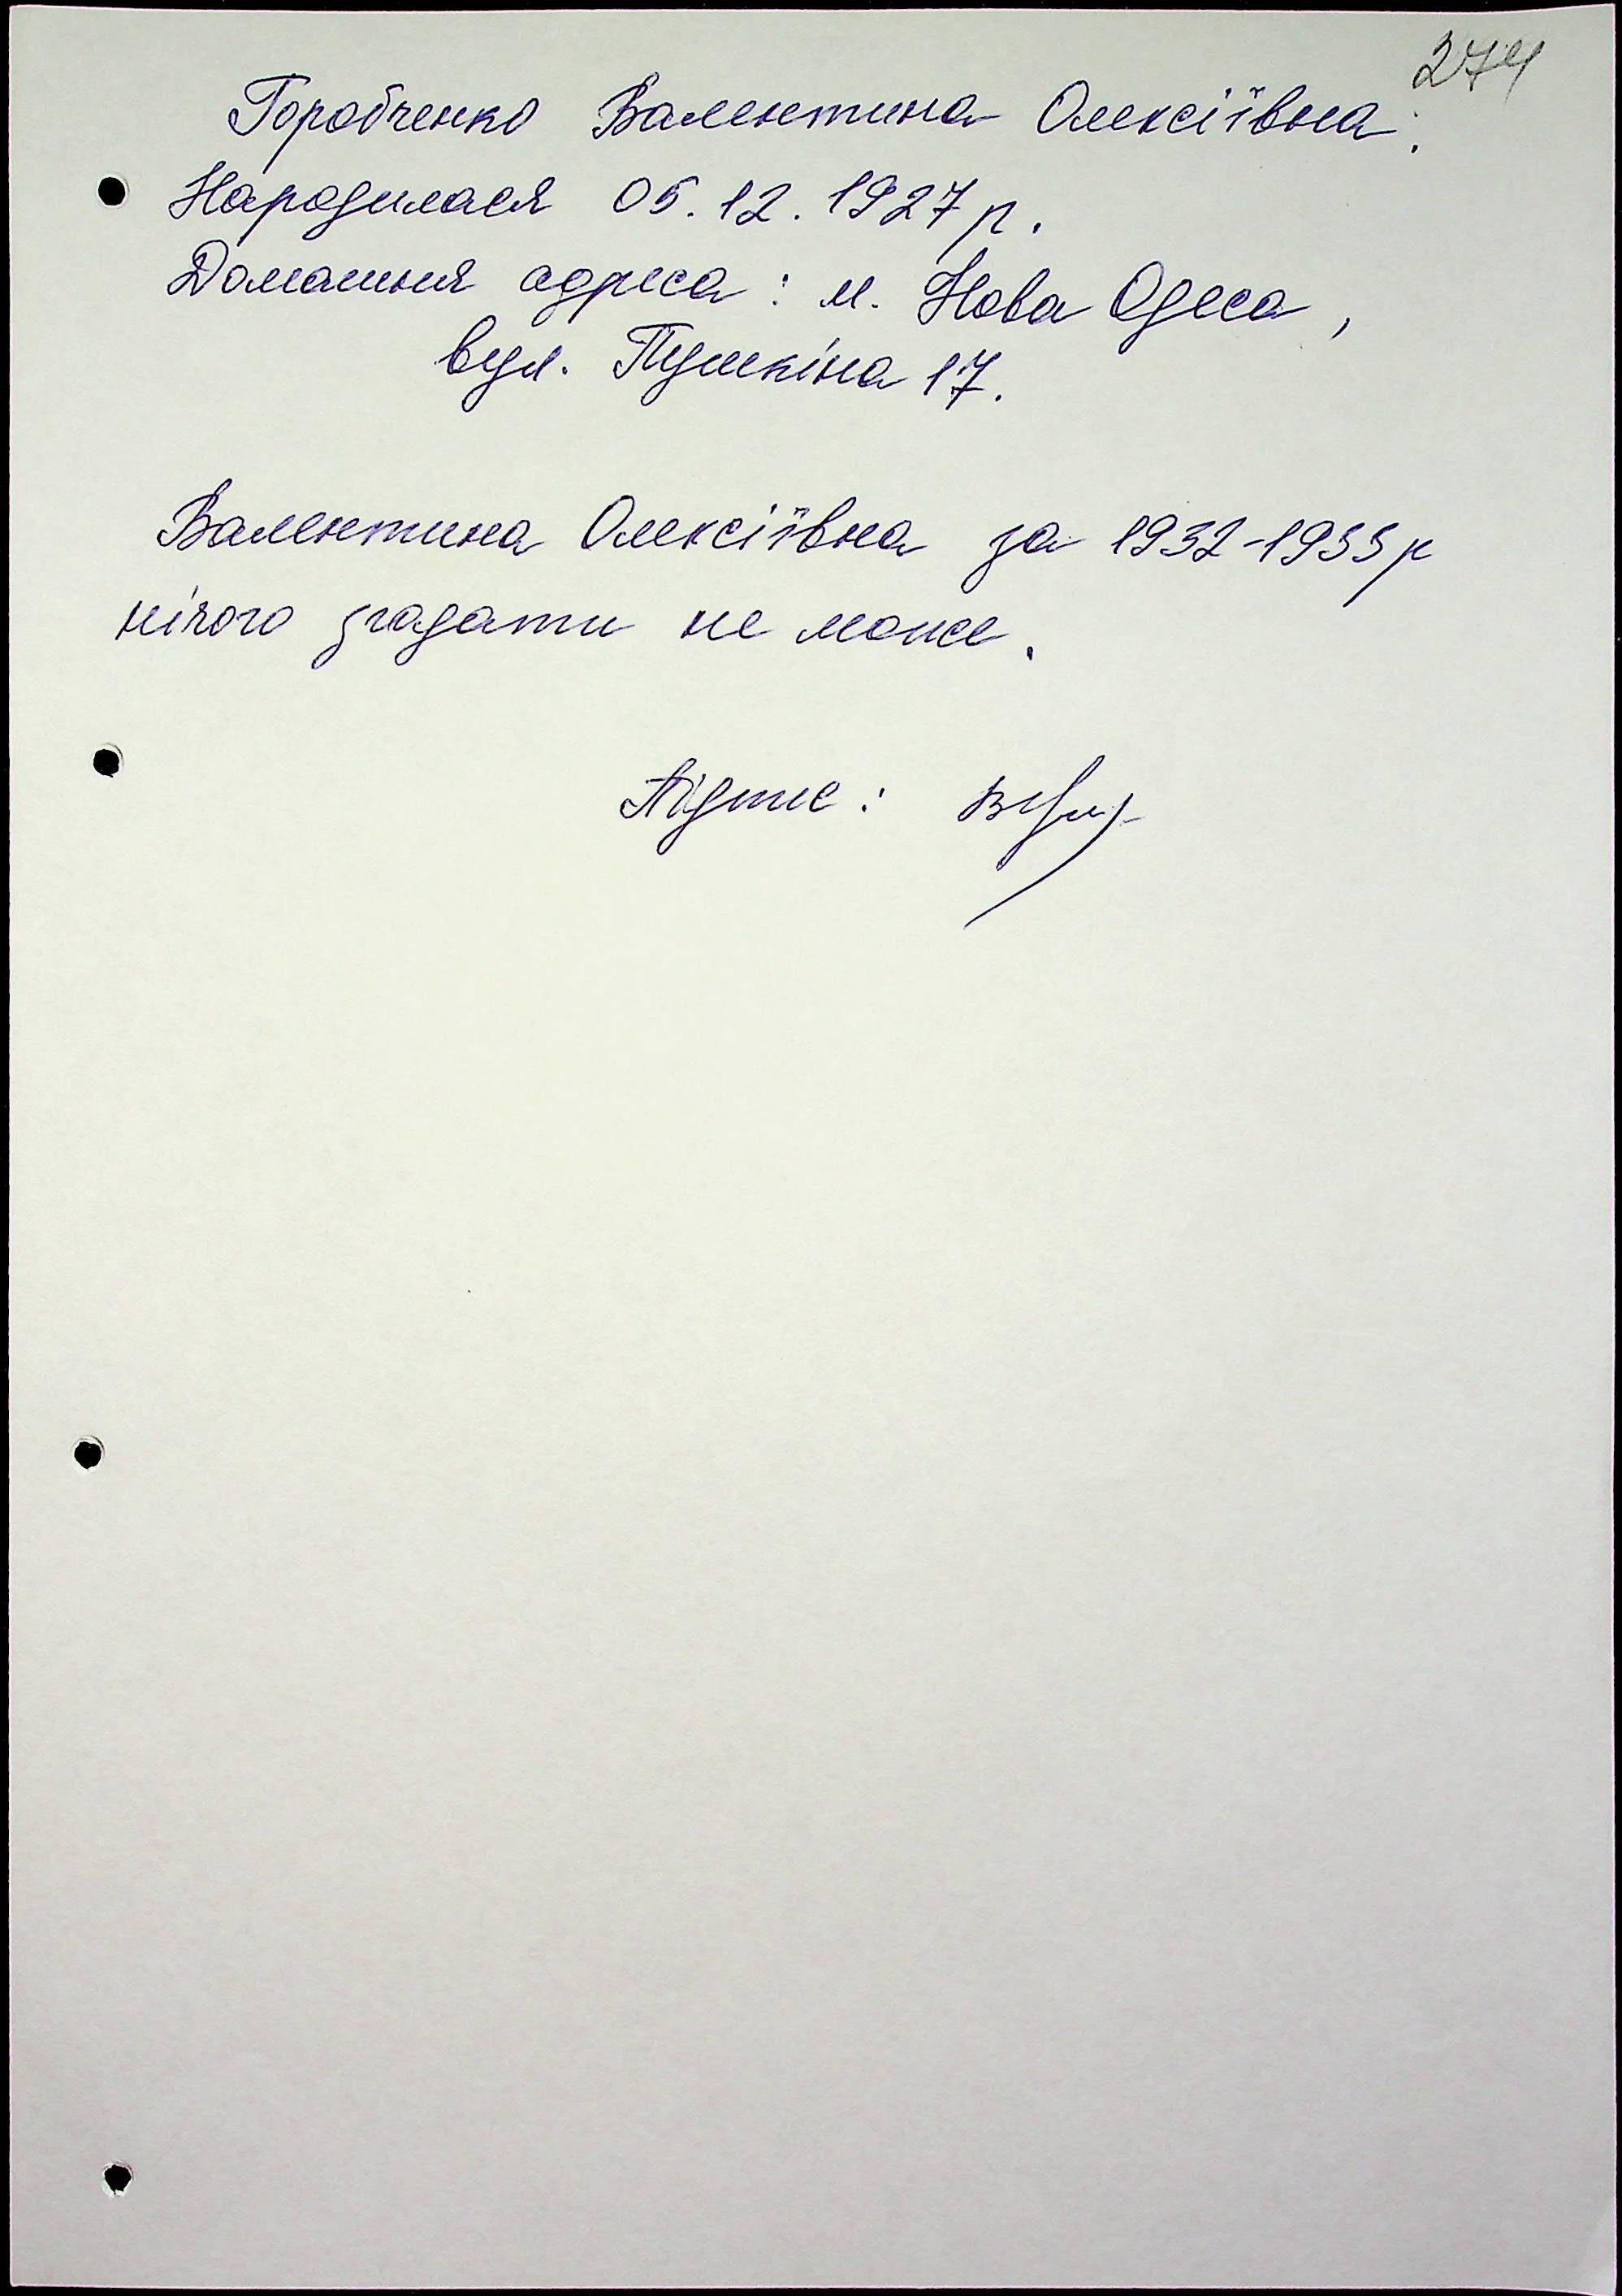 274
Горобченко Валентина Олексіївна.
Народилася 05.12.1927 р.
Домашня адреса: м. Нова Одеса,
вул. Пушкіна 17.
Валентина Олексіївна за 1932-1933 р
нічого згадати не може.
Підпис: